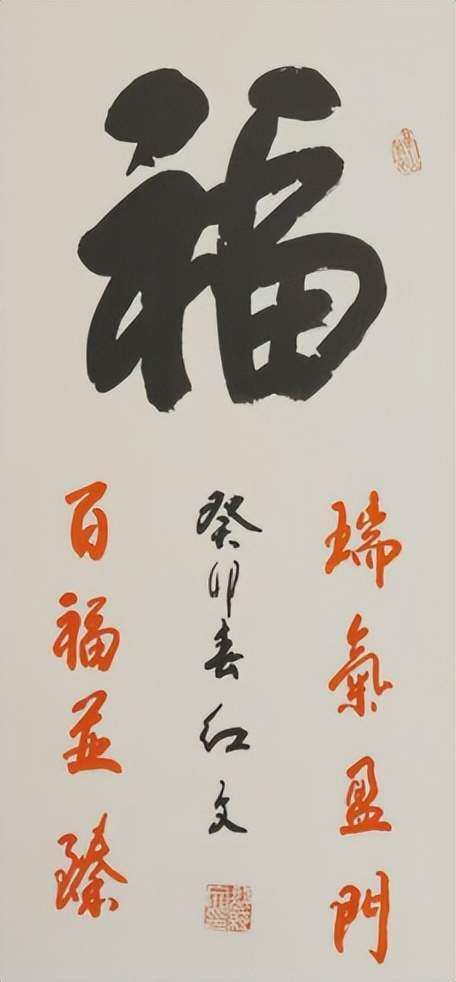 福
瑞氣盈門
癸卯春 红文
百福並臻